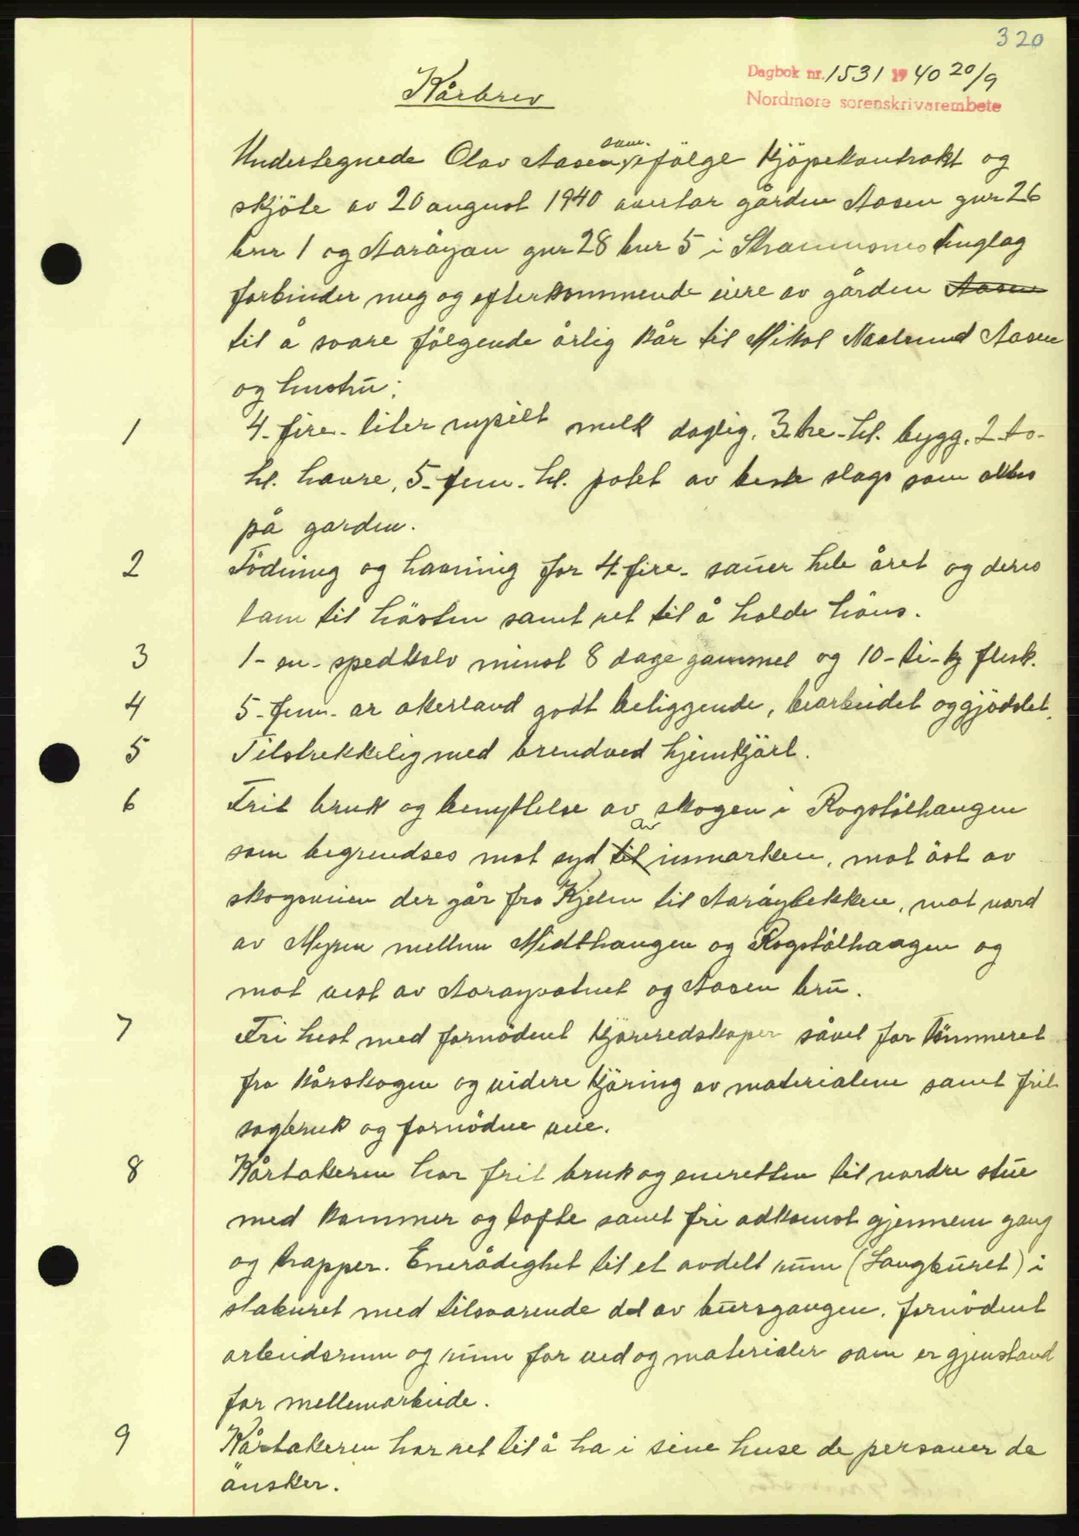 320
Dagbok nr. 1531 1940 20/9
Nordmøre sorenskrivarembete
Kårbrev
Undertegnede Olav Aasen, som ifölge kjöpekontrakt og
skjöte av 20 august 1940 overtar gården Aasen gnr 26
bnr 1 og Aaröyan gnr 28 bnr 5 i Straumsnes tinglag
forbinder meg og efterkommende eiere av gården Aasen
til å svare följende årlig kår til Mikal Aasen
og hustru:
1 4- fire- liter nysilt melk daglig, 3 tre- hl. bygg, 2 to-
hl. havre, 5- fem- hl. potet av beste slags som avles
på garden.
2 Födning og havning for 4- fire- sauer hele året og deres
lam til hösten samt ret til å holde höns.
3 1- en- spedkalv minst 8 dage gammel og 10- ti- kg flesk.
4 5- fem- ar akerland godt beliggende, bearbeidet og gjödslet.
5 Tilstrekkelig med brendved hjemkjört.
6 Frit bruk og benyttelse av skogen i Rogstölhaugen
som begrendses mot syd til av inmarken, mot öst av
skogsveien der går fra Kjelen til Aaröybekken, mot nord
av Myren mellem Midthaugen og Rogstölhaugen og
mot vest av Aaröyvatnet og Aasen bru.
7 Fri hest med fornödent kjöreredskaper såvel for tömmeret
fra kårskogen og videre kjöring av materialene samt frit
sagbruk og fornödne veie.
8 Kårtakeren har frit bruk og eneretten til nordre stue
med kammer og lofte samt fri adkomst gjennem gang
og trapper. Enerådighet til et avdelt rum (Langburet) i
stabburet med tilsvarende del av bursgangen, fornödent
arbeidsrum og rum for ved og materialer som er gjenstand
for mellemarbeide.
9 Kårtakeren har ret til å ha i sine huse de personer de
önsker.